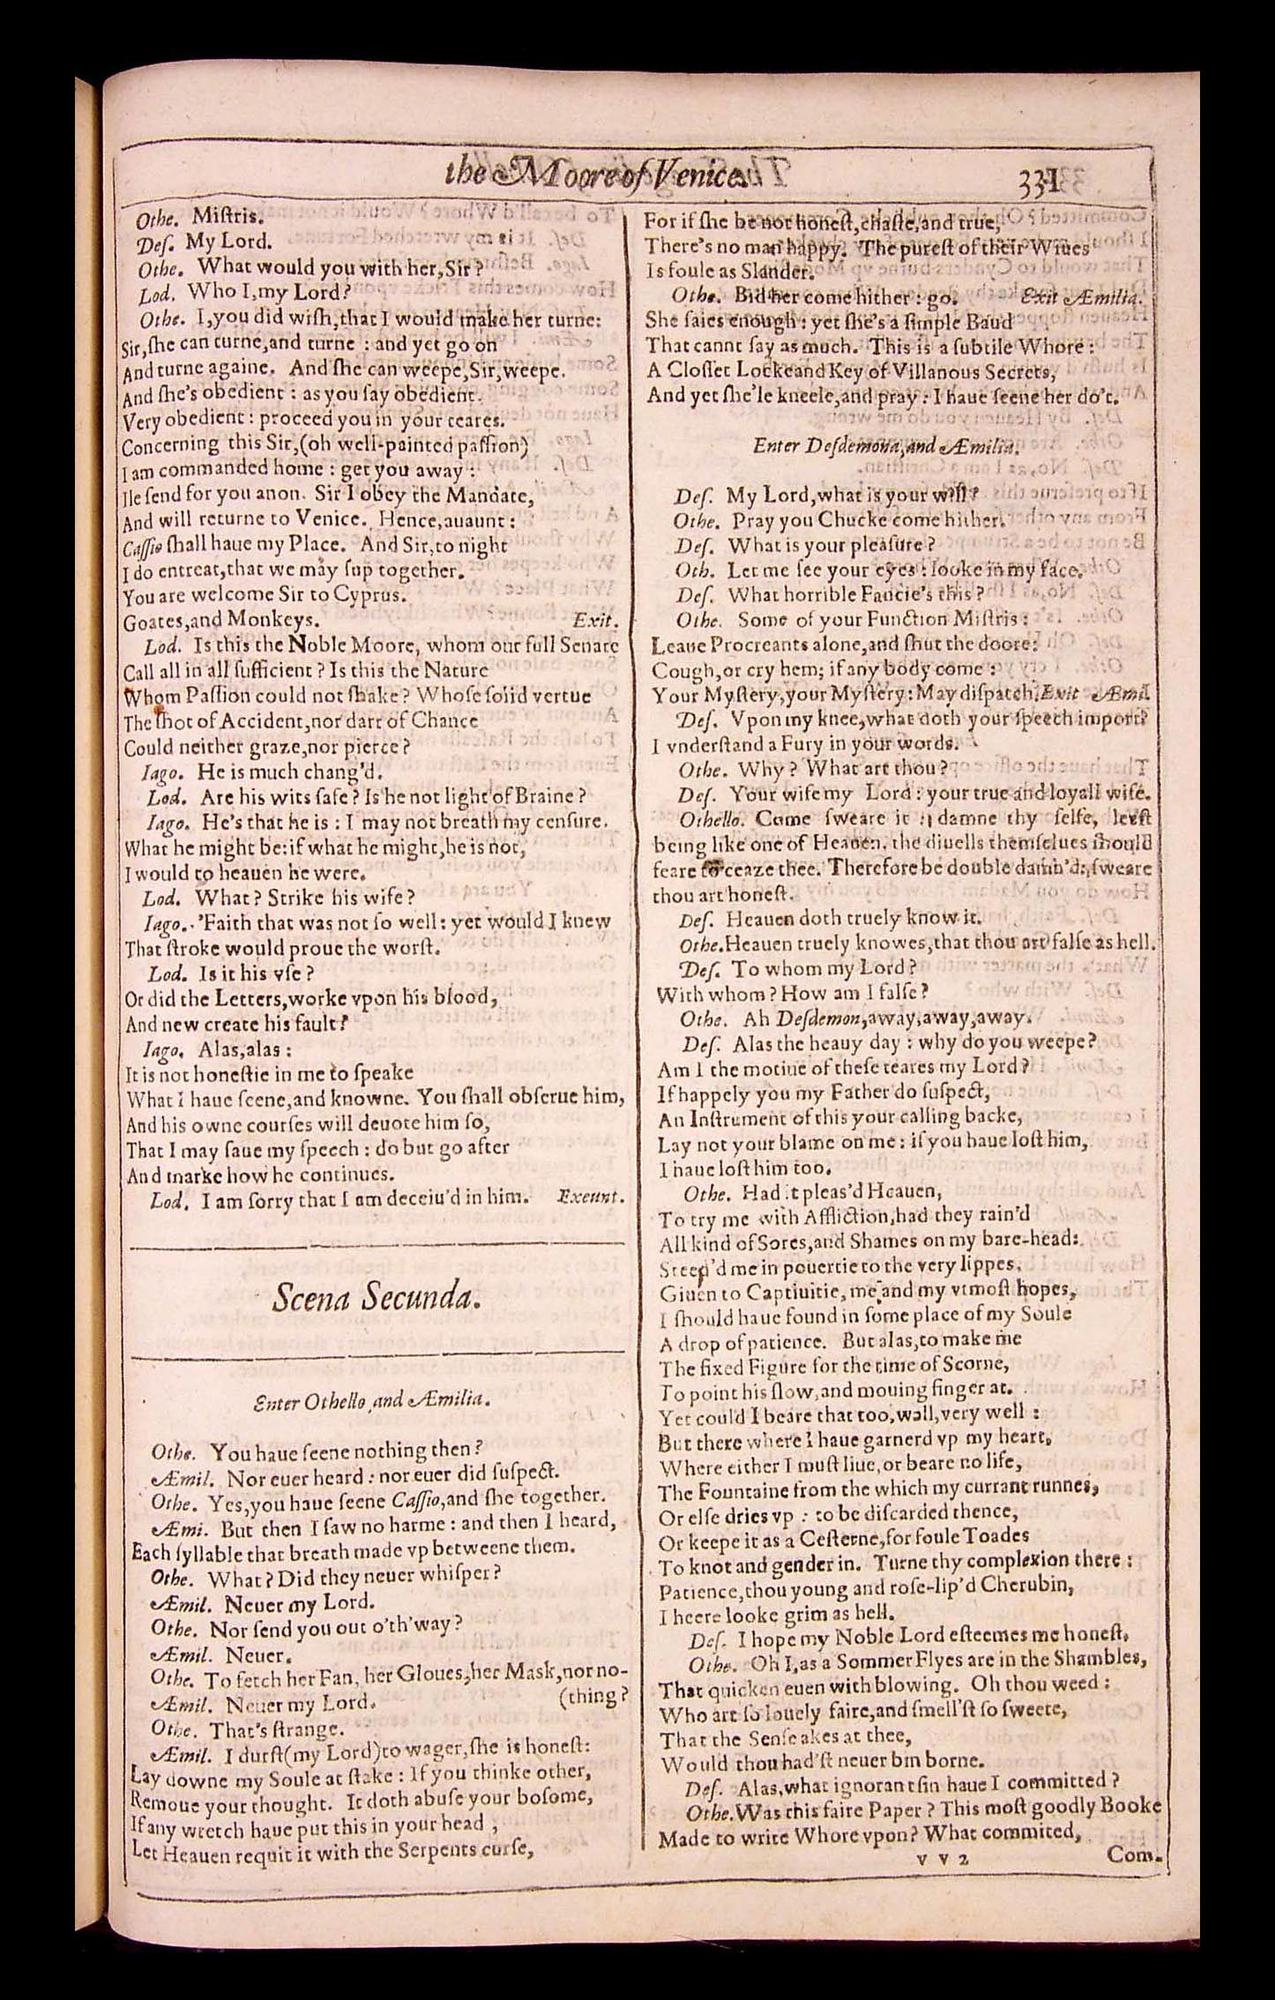 the Moore of Venice. 331
Othe. Miſtris.
Deſ. My Lord.
Othe. What would you with her,Sir?
Lod. Who I,my Lord?
Othe. I,you did wiſh,that I would make her turne:
Sir,ſhe can turne,and turne : and yet go on
And turne againe. And ſhe can weepe,Sir,weepe.
And ſhe's obedient : as you ſay obedient.
Very obedient : proceed you in your teares.
Concerning this Sir,(oh well-painted paſſion)
I am commanded home : get you away :
Ile ſend for you anon. Sir I obey the Mandate,
And will returne to Venice. Hence,auaunt :
Caſſio ſhall haue my Place. And Sir,to night
I do entreat,that we may ſup together.
You are welcome Sir to Cyprus.
Goates,and Monkeys. Exit.
Lod. Is this the Noble Moore, whom our full Senate
Call all in all ſufficient? Is this the Nature
Whom Paſſion could not ſhake? Whoſe ſolid vertue
The ſhot of Accident,nor dart of Chance
Could neither graze,nor pierce?
Iago. He is much chang'd.
Lod. Are his wits ſafe? Is he not light of Braine?
Iago. He's that he is : I may not breath my cenſure.
What he might be:if what he might,he is not,
I would to heauen he were.
Lod. What? Strike his wife?
Iago. 'Faith that was not ſo well: yet would I knew
That ſtroke would proue the worſt.
Lod. Is it his vſe?
Or did the Letters,worke vpon his blood,
And new create his fault?
Iago. Alas,alas :
It is not honeſtie in me to ſpeake
What I haue ſeene,and knowne. You ſhall obſerue him,
And his owne courſes will deuote him ſo,
That I may ſaue my ſpeech : do but go after
And marke how he continues.
Lod. I am ſorry that I am deceiu'd in him. Exeunt.
Scena Secunda.
Enter Othello,and Æmilia.
Othe. You haue ſeene nothing then?
Æmil. Nor euer heard : nor euer did ſuſpect.
Othe. Yes,you haue ſeene Caſſio,and ſhe together.
Æmi. But then I ſaw no harme : and then I heard,
Each ſyllable that breath made vp betweene them.
Othe. What? Did they neuer whiſper?
Æmil. Neuer my Lord.
Othe. Nor ſend you out o'th'way?
Æmil. Neuer.
Othe. To fetch her Fan, her Gloues,her Mask,nor no-
Æmil. Neuer my Lord. (thing?
Othe. That's ſtrange.
Æmil. I durſt(my Lord)to wager,ſhe is honeſt:
Lay downe my Soule at ſtake : If you thinke other,
Remoue your thought. It doth abuſe your boſome,
If any wretch haue put this in your head ,
Let Heauen requit it with the Serpents curſe,
For if ſhe be not honeſt,chaſte,and true,
There's no man happy. The pureſt of their Wiues
Is foule as Slander.
Othe. Bid her come hither : go. Exit Æmilia.
She ſaies enough : yet ſhe's a ſimple Baud
That cannt ſay as much. This is a ſubtile Whore :
A Cloſſet Lockeand Key of Villanous Secrets,
And yet ſhe'le kneele,and pray : I haue ſeene her do't.
Enter Deſdemona,and Æmilia.
Deſ. My Lord,what is your will?
Othe. Pray you Chucke come hither.
Deſ. What is your pleaſure?
Oth. Let me ſee your eyes : looke in my face.
Deſ. What horrible Fancie's this?
Othe. Some of your Function Miſtris :
Leaue Procreants alone,and ſhut the doore:
Cough,or cry hem; if any body come :
Your Myſtery,your Myſtery: May diſpatch. Exit Æmil.
Deſ. Vpon my knee,what doth your ſpeech import?
I vnderſtand a Fury in your words.
Othe. Why? What art thou?
Deſ. Your wife my Lord : your true and loyall wife.
Othello. Come ſweare it : damne thy ſelfe, leaſt
being like one of Heauen, the diuells themſelues ſhould
feare to ceaze thee. Therefore be double damn'd: ſweare
thou art honeſt.
Deſ. Heauen doth truely know it.
Othe.Heauen truely knowes,that thou art falſe as hell.
Deſ. To whom my Lord?
With whom? How am I falſe?
Othe. Ah Deſdemon,away,away,away.
Deſ. Alas the heauy day : why do you weepe?
Am I the motiue of theſe teares my Lord?
If happely you my Father do ſuſpect,
An Inſtrument of this your calling backe,
Lay not your blame on me : if you haue loſt him,
I haue loſt him too.
Othe. Had it pleas'd Heauen,
To try me with Affliction,had they rain'd
All kind of Sores,and Shames on my bare-head:
Steep'd me in pouertie to the very lippes.
Giuen to Captiuitie, me and my vtmoſt hopes,
I ſhould haue found in ſome place of my Soule
A drop of patience. But alas,to make me
The fixed Figure for the time of Scorne,
To point his ſlow,and mouing finger at.
Yet could I beare that too,wall,very well :
But there where I haue garnerd vp my heart,
Where either I muſt liue,or beare no life,
The Fountaine from the which my currant runnes,
Or elſe dries vp : to be diſcarded thence,
Or keepe it as a Ceſterne,for foule Toades
To knot and gender in. Turne thy complexion there :
Patience,thou young and roſe-lip'd Cherubin,
I heere looke grim as hell.
Deſ. I hope my Noble Lord eſteemes me honeſt.
Othe. Oh I,as a Sommer Flyes are in the Shambles,
That quicken euen with blowing. Oh thou weed :
Who art ſo louely faire,and ſmell'ſt ſo ſweete,
That the Senſe akes at thee,
Would thou had'ſt neuer bin borne.
Deſ. Alas,what ignorant ſin haue I committed?
Othe.Was this faire Paper? This moſt goodly Booke
Made to write Whore vpon? What commited,
v v 2 Com-